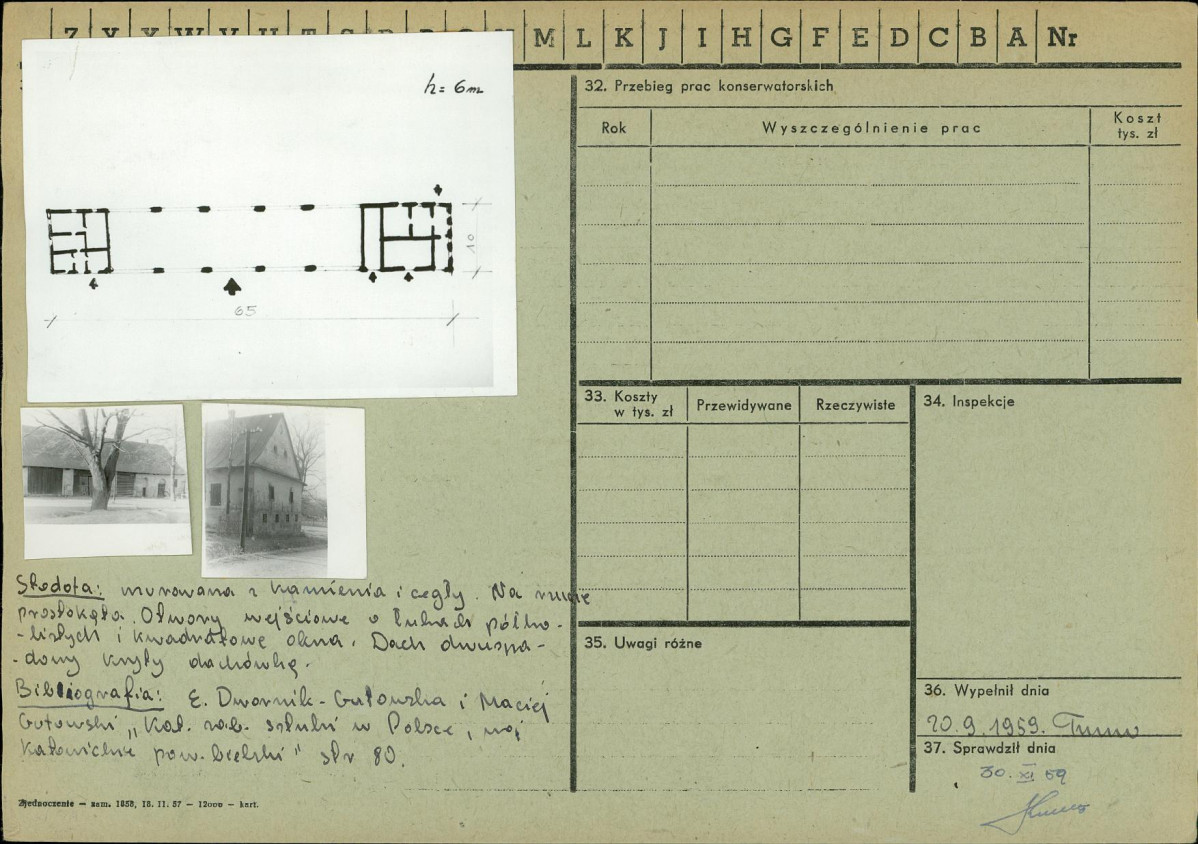 Z Y X W V U T S R P O N M L K J I H G F E D C B A Nr
h = 6m
10
65
Słodoła: murowana z kamienia i cegły. Na rzucie
prostokąta. Otwory wejściowe o łukach półko-
-listych i kwadratowe okna. Dach dwuspa-
-dowy kryty dachówką.
Bibliografia: E. Dwornik-Gutowska i Maciej
Gutowski „Kat. zab. sztuki w Polsce, woj
katowickie pow. bielski" str 80.
Zjednoczenie — zam. 1858, 18. 11. 57 — 12000 — kart.
32. Przebieg prac konserwatorskich
Rok
Wyszczególnienie prac
Koszt
tys. zł
33. Koszty
w tys. zł
Przewidywane
Rzeczywiste
34. Inspekcje
35. Uwagi różne
36. Wypełnił dnia
20.9.1959.
37. Sprawdził dnia
30. XI 59